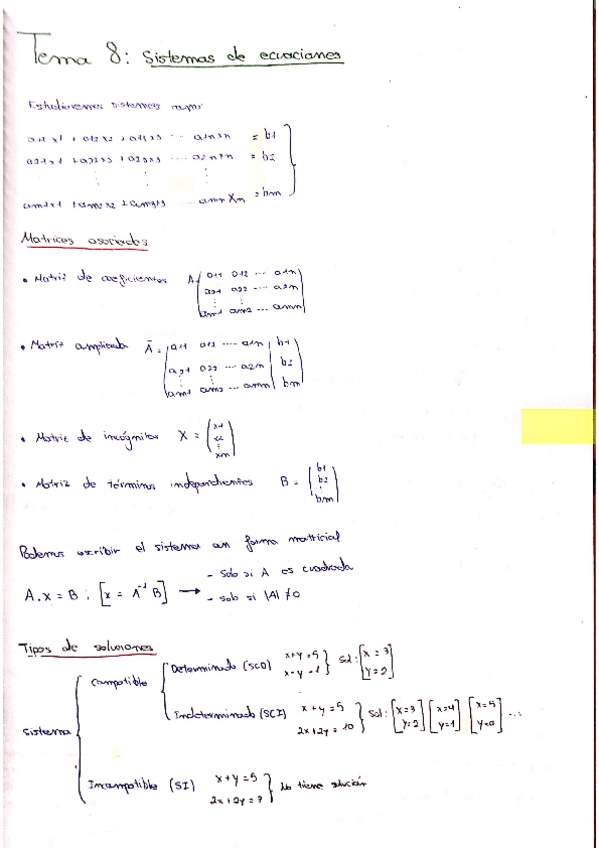 Tema 8: Sistemas de ecuaciones
Estudiaremos sistemas
a11x1 + a12x2 + a13x3 ... a1nxn = b1
a21x1 + a22x2 + a23x3 ... a2nxn = b2
⋮ ⋮ ⋮
am1x1 + am2x2 + am3x3 ... amnXn = bm
Matrices asociadas
• Matriz de coeficientes A = (a11 a12 ... a1n
a21 a22 ... a2n
⋮ ⋮
am1 am2 ... amn)
• Matriz ampliada Ā = (a11 a12 .... a1n | b1
a21 a22 ... a2n | b2
⋮ ⋮
am1 am2 ... amn | bm)
• Matriz de incógnitas X = (x1
x2
⋮
xm)
• Matriz de términos independientes B = (b1
b2
⋮
bm)
Podemos escribir el sistema en forma matricial
A.x = B ; [x = A⁻¹ B] → - Solo si A es cuadrada
- solo si |A| ≠ 0
Tipos de soluciones
Sistema
Compatible
Determinado (SCD) x+y=5
x-y=1 } Sol: [x=3
y=2]
Indeterminado (SCI) x+y=5
2x+2y=10 } Sol: [x=3 y=2] [x=4 y=1] [x=5 y=0] ...
Incompatible (SI) x+y=5
2x+2y=7 } No tiene solución